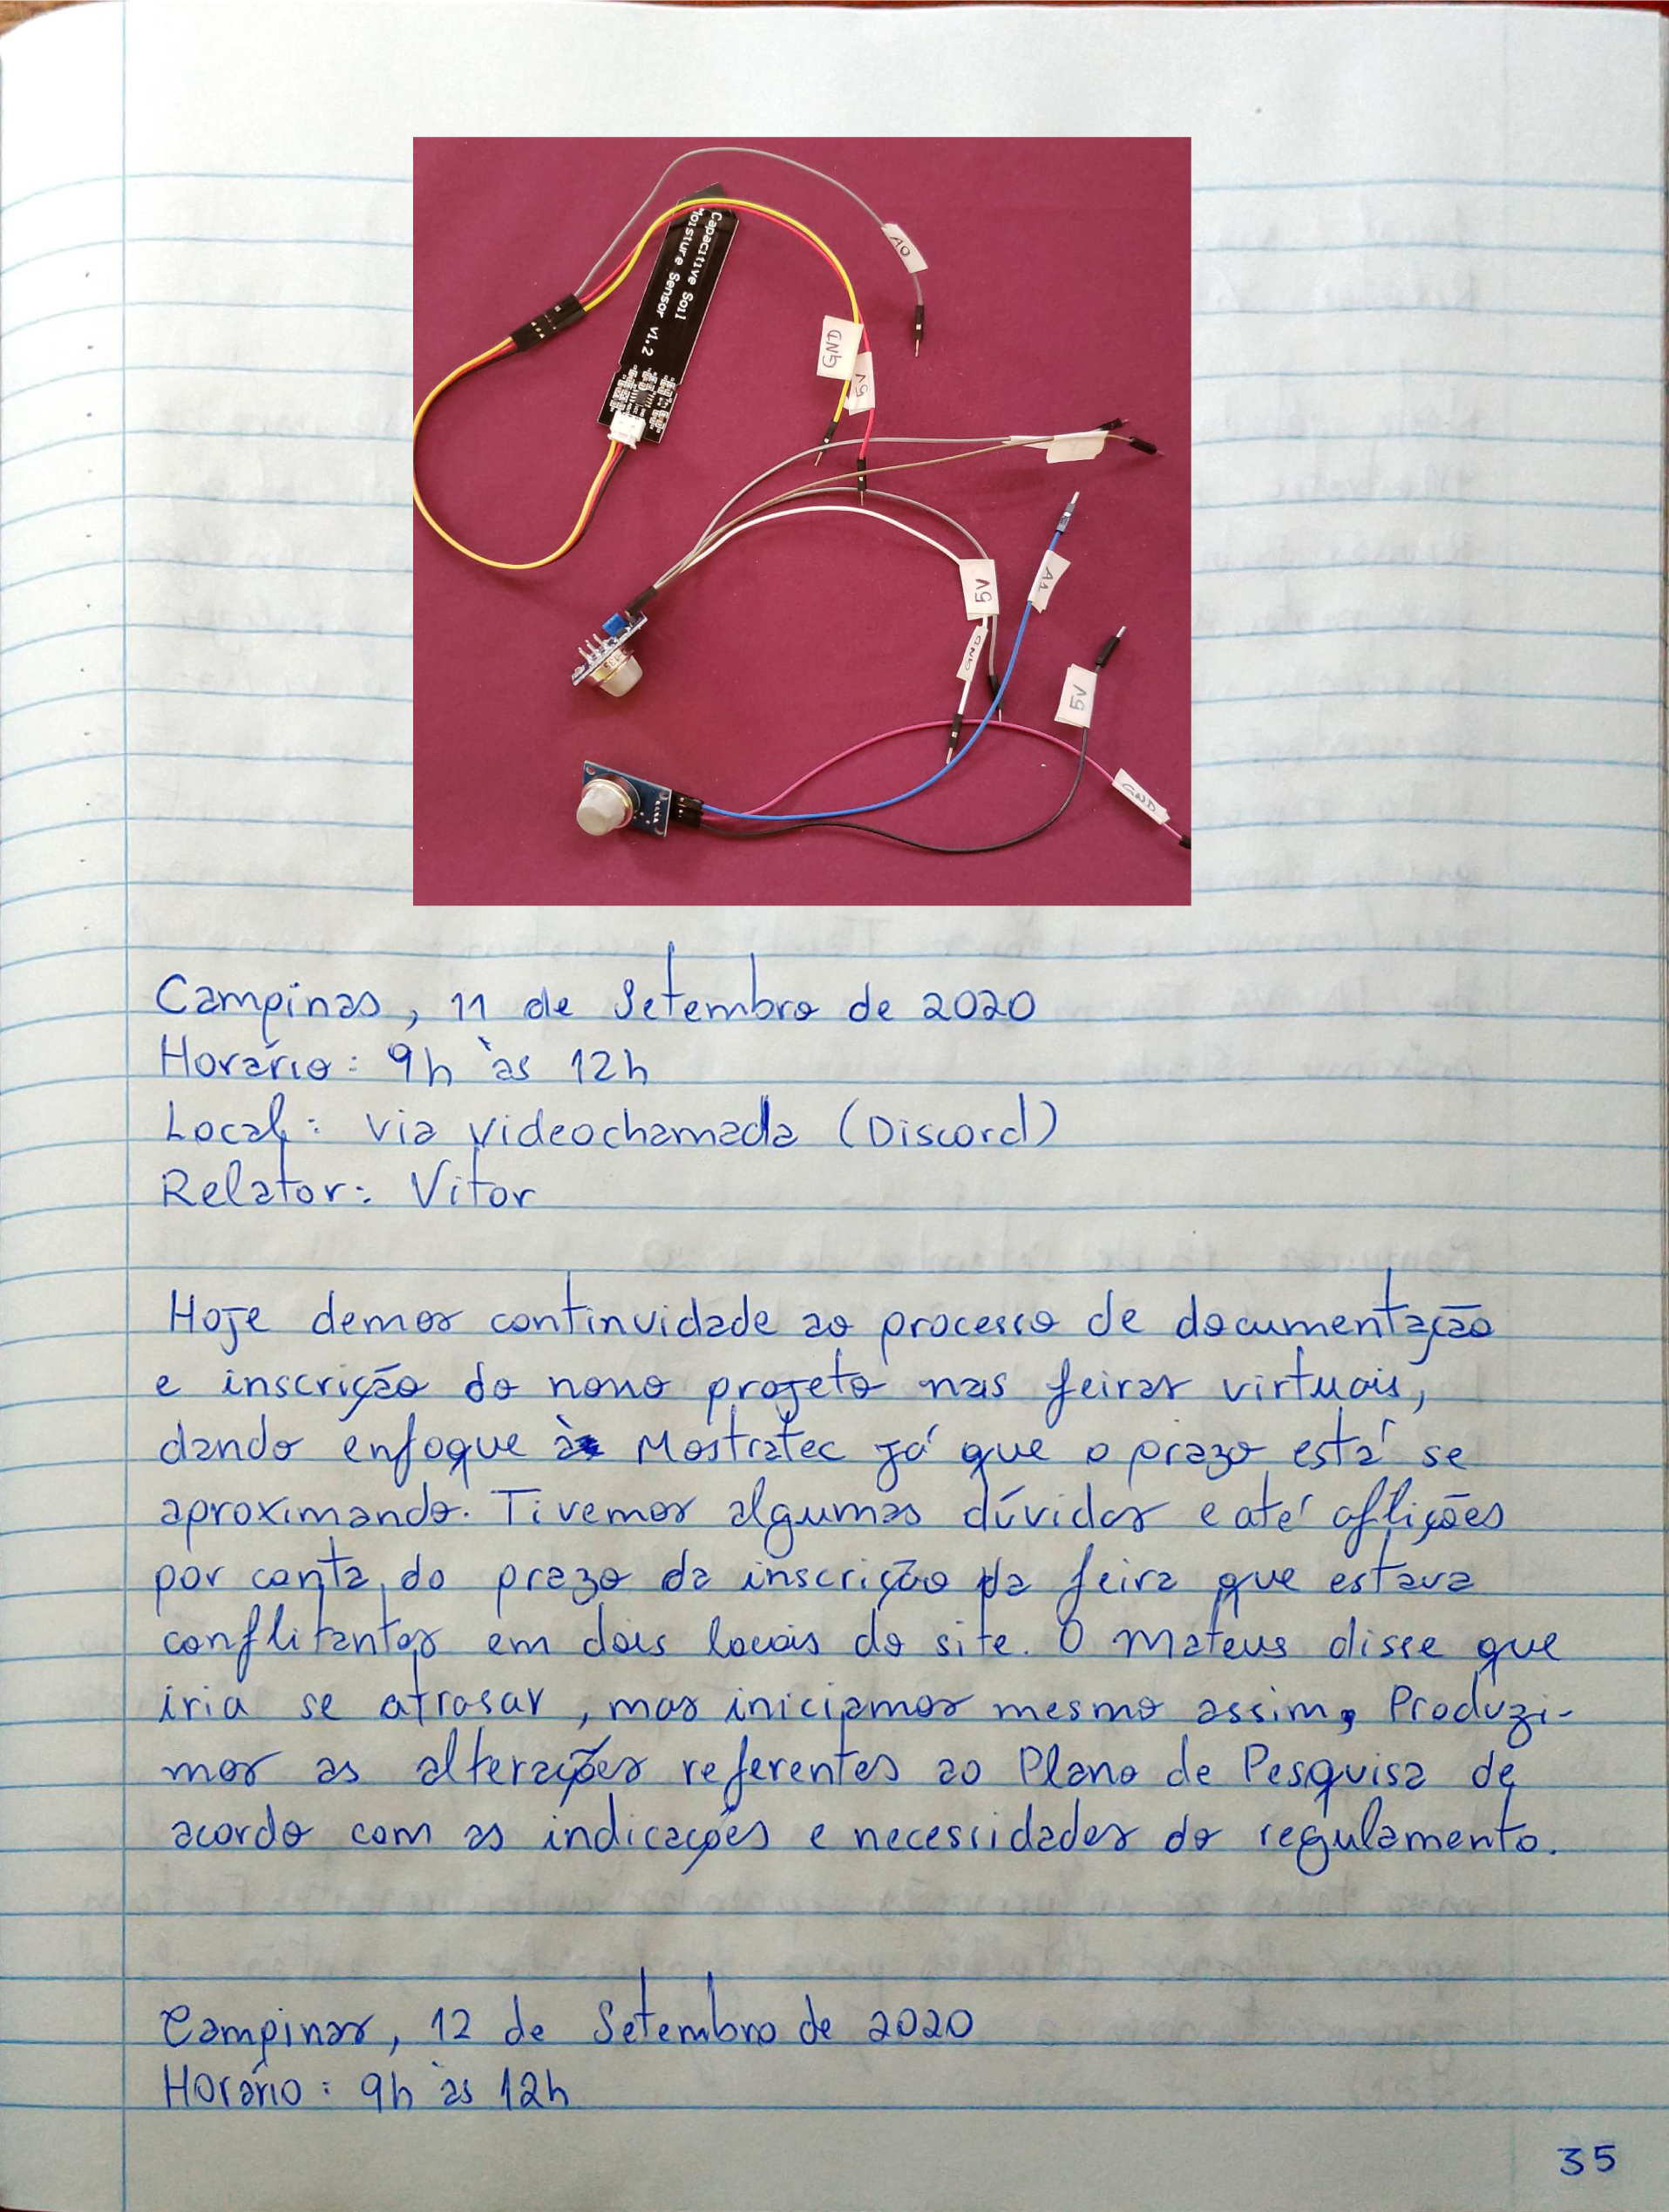 A0
Capacitive Soil
Moisture Sensor v1.2
GND
5V
5V
A1
GND
5V
GND
Campinas, 11 de Setembro de 2020
Horário: 9h às 12h
Local: via videochamada (Discord)
Relator: Vitor
Hoje demos continuidade ao processo de documentação
e inscrição do nosso projeto nas feiras virtuais,
dando enfoque à Mostratec já que o prazo está se
aproximando. Tivemos algumas dúvidas e até aflições
por conta do prazo da inscrição da feira que estava
conflitantes em dois locais do site. O Mateus disse que
iria se atrasar, mas iniciamos mesmo assim, Produzi-
mos as alterações referentes ao Plano de Pesquisa de
acordo com as indicações e necessidades do regulamento.
Campinas, 12 de Setembro de 2020
Horário: 9h às 12h
35